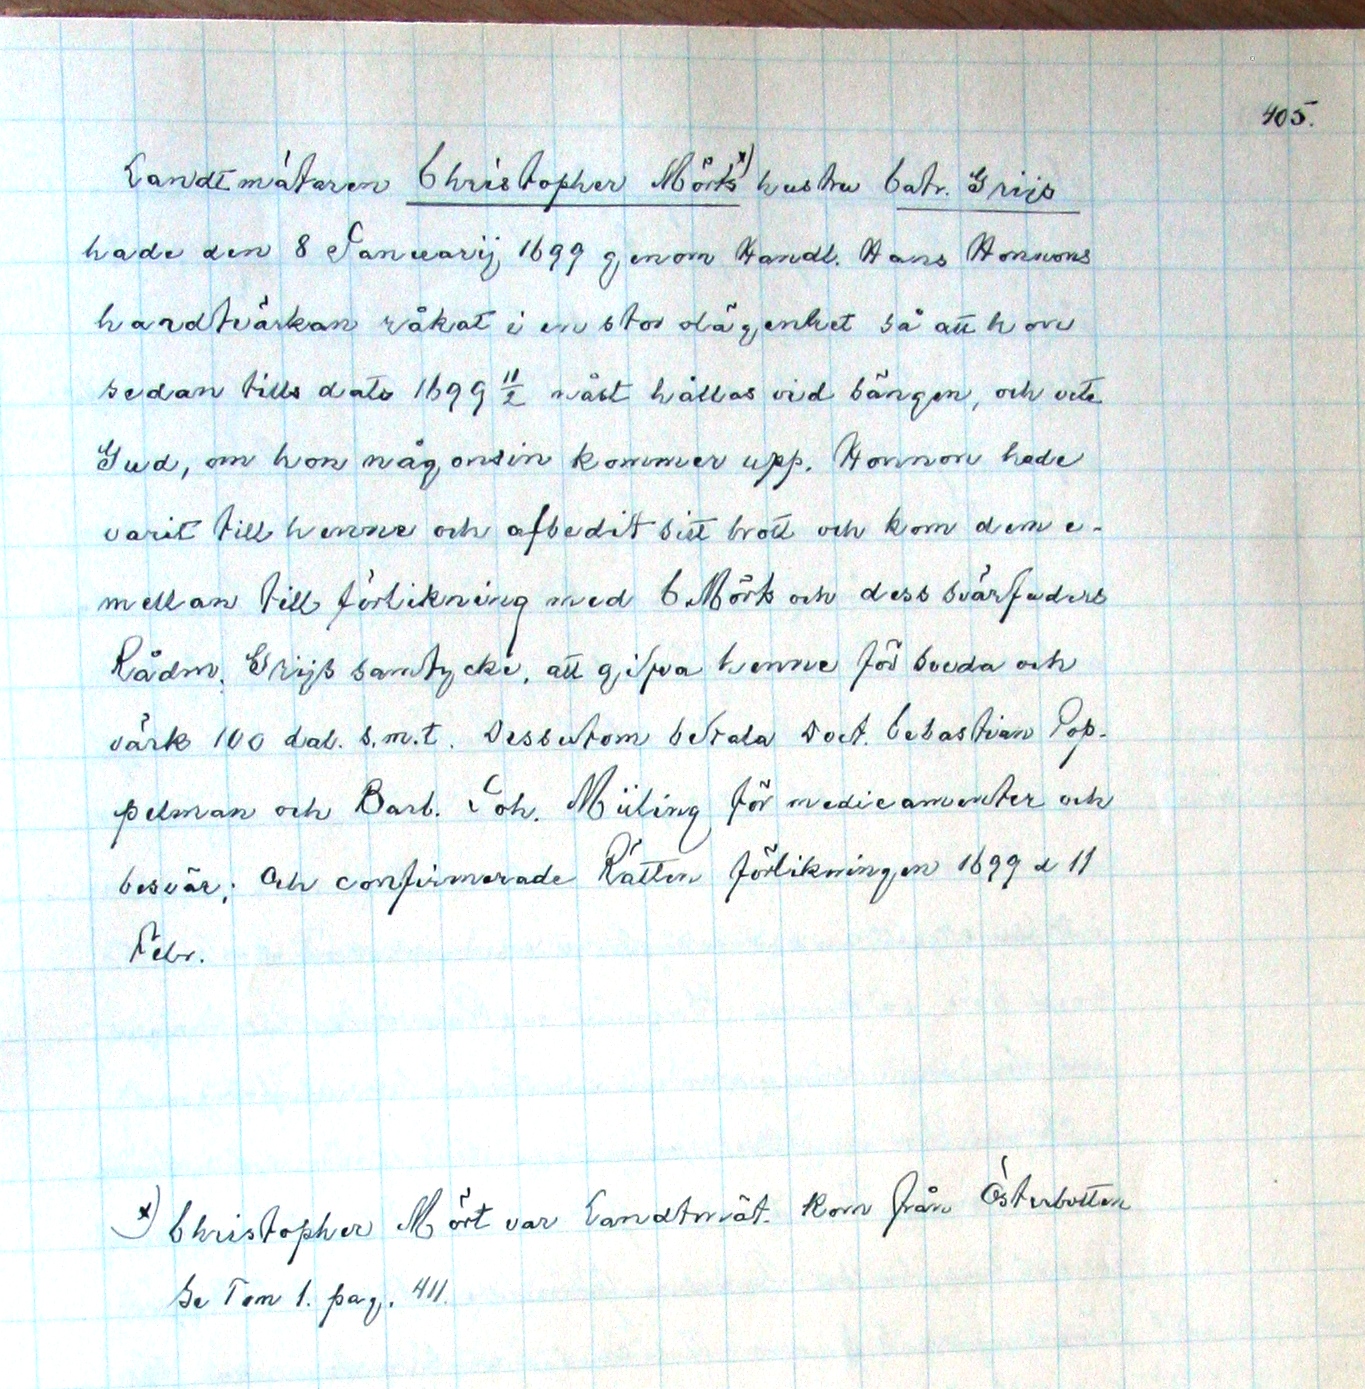 405.
Landtmätaren Christopher Mörts x) hustru Catr. Grijs
hade den 8 Januarij 1699 genom Handl. Hans Honnons
handtvärkan råkat i en stor olägenhet så att hon
sedan tills dato 1699 11/2 måst hållas vid sängen, och vete
Gud, om hon någonsin kommer upp. Honnon hade
varit till henne och afbedit sitt brott och kom dem e-
mellan till förlikning med C. Mörts och dess svärfaders
Rådm. Grijs samtycke, att gifva henne för sveda och
värk 100 dal. s.m.t. Dessutom betala Doct. Sebastian Pop-
pelman och Barb. Joh. Müling för medicamenter och
besvär; Och confirmerade Rätten förlikningen 1699 d 11
Febr.
x) Christopher Mört var Landtmät. kom från Österbotten
Se Tom 1. pag. 411.